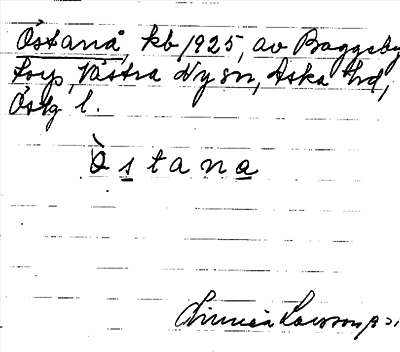 Östanå, kb 1925, av Baggeby
torp, Västra Ny sn, Aska hrd,
Östg l.
Ö s t a n a
Linnéa Larsson